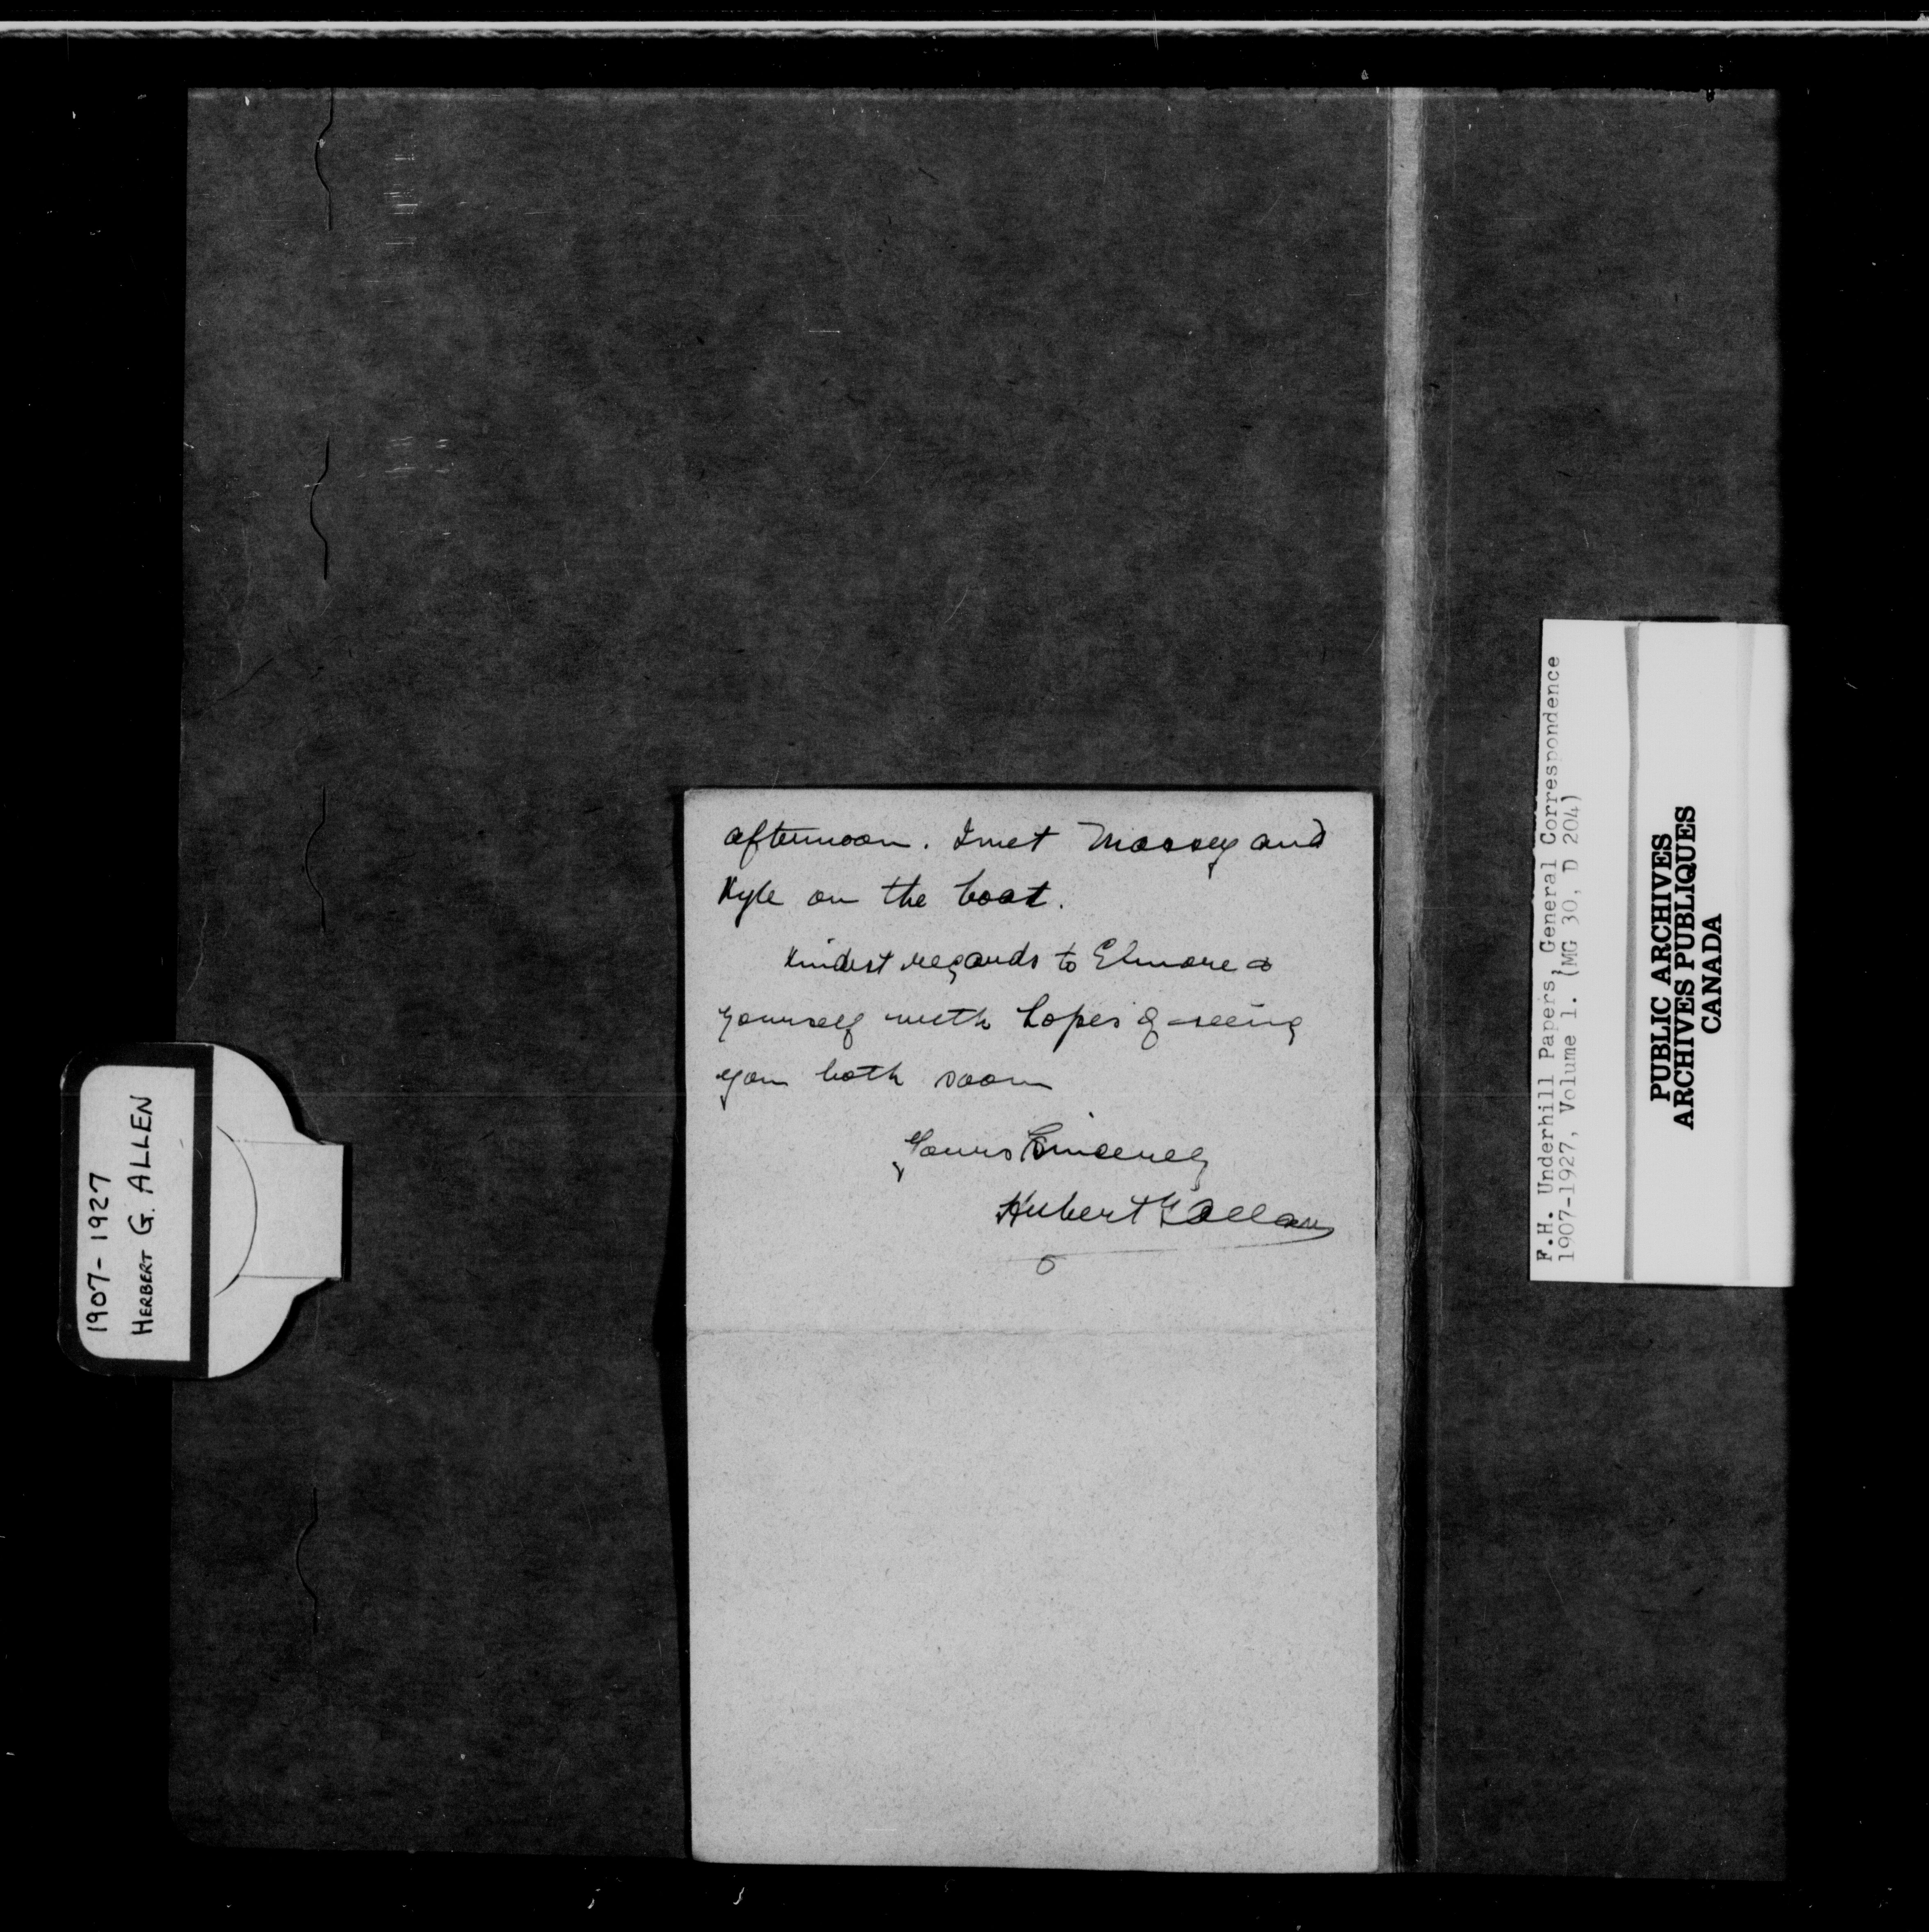 afternoon. I met Massey and
Kyle on the boat.
Kindest regards to Elmore &
yourself with hopes of seeing
you both soon
Yours Sincerely
Hubert G Allan
1907-1927
HERBERT G. ALLEN
F.H. Underhill Papers, General Correspondence
1907-1927, Volume 1. (MG 30, D 204)
PUBLIC ARCHIVES
ARCHIVES PUBLIQUES
CANADA